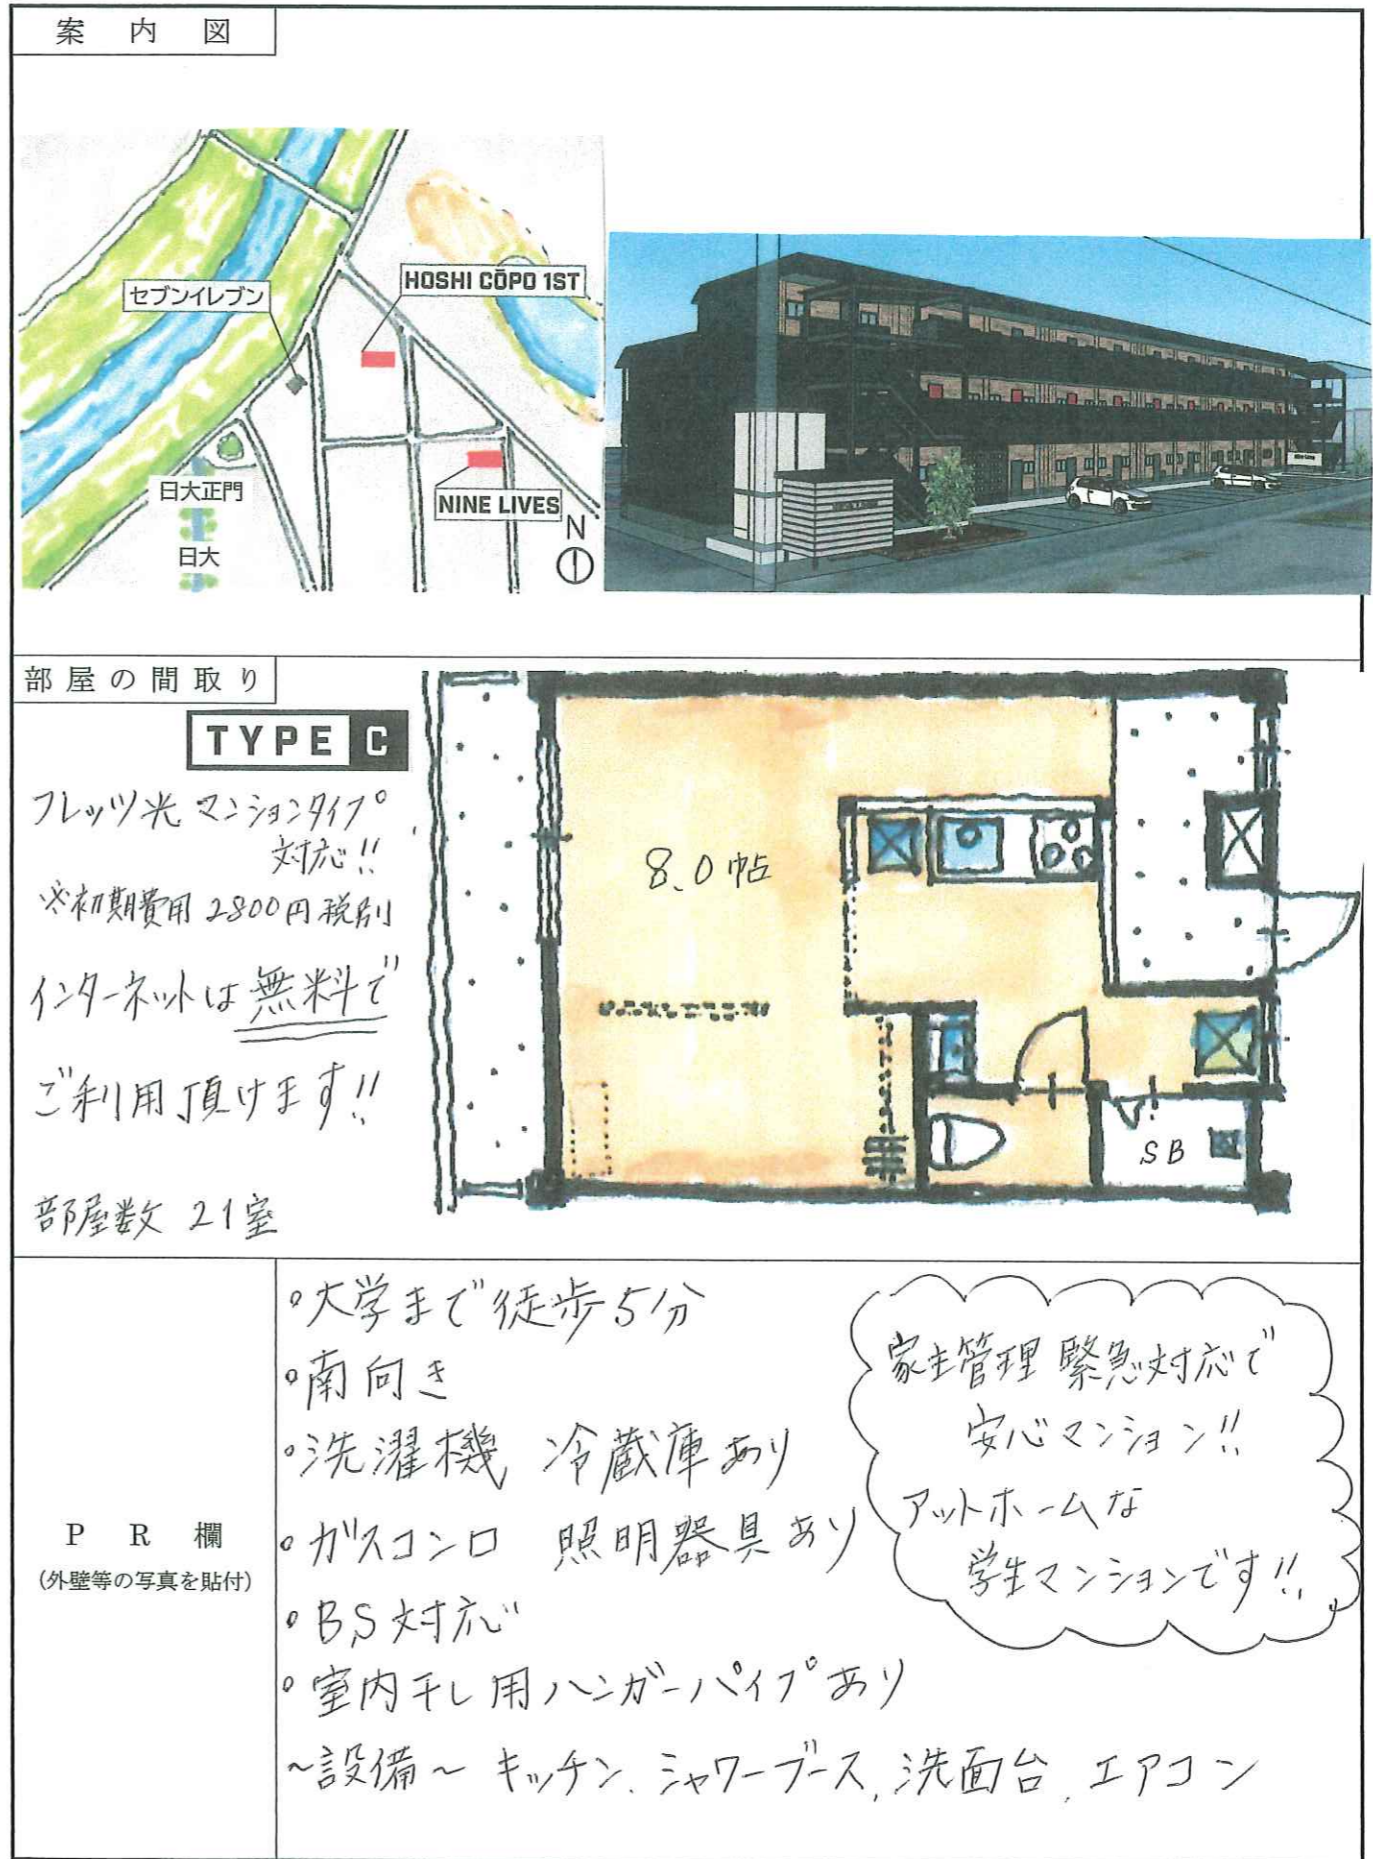 案内図
セブンイレブン
HOSHI CŌPO 1ST
日大正門
NINE LIVES
日大
N
部屋の間取り
TYPE C
フレッツ光 マンションタイプ
対応!!
※初期費用 2800円 税別
インターネットは 無料で
ご利用頂けます!!
部屋数 21室
8.0帖
SB
PR欄
(外壁等の写真を貼付)
°大学まで徒歩5分
°南向き
°洗濯機 冷蔵庫あり
°ガスコンロ 照明器具あり
°BS対応
°室内干し用ハンガーパイプあり
~設備~ キッチン、シャワーブース、洗面台、エアコン
家主管理 緊急対応で
安心マンション!!
アットホームな
学生マンションです!!